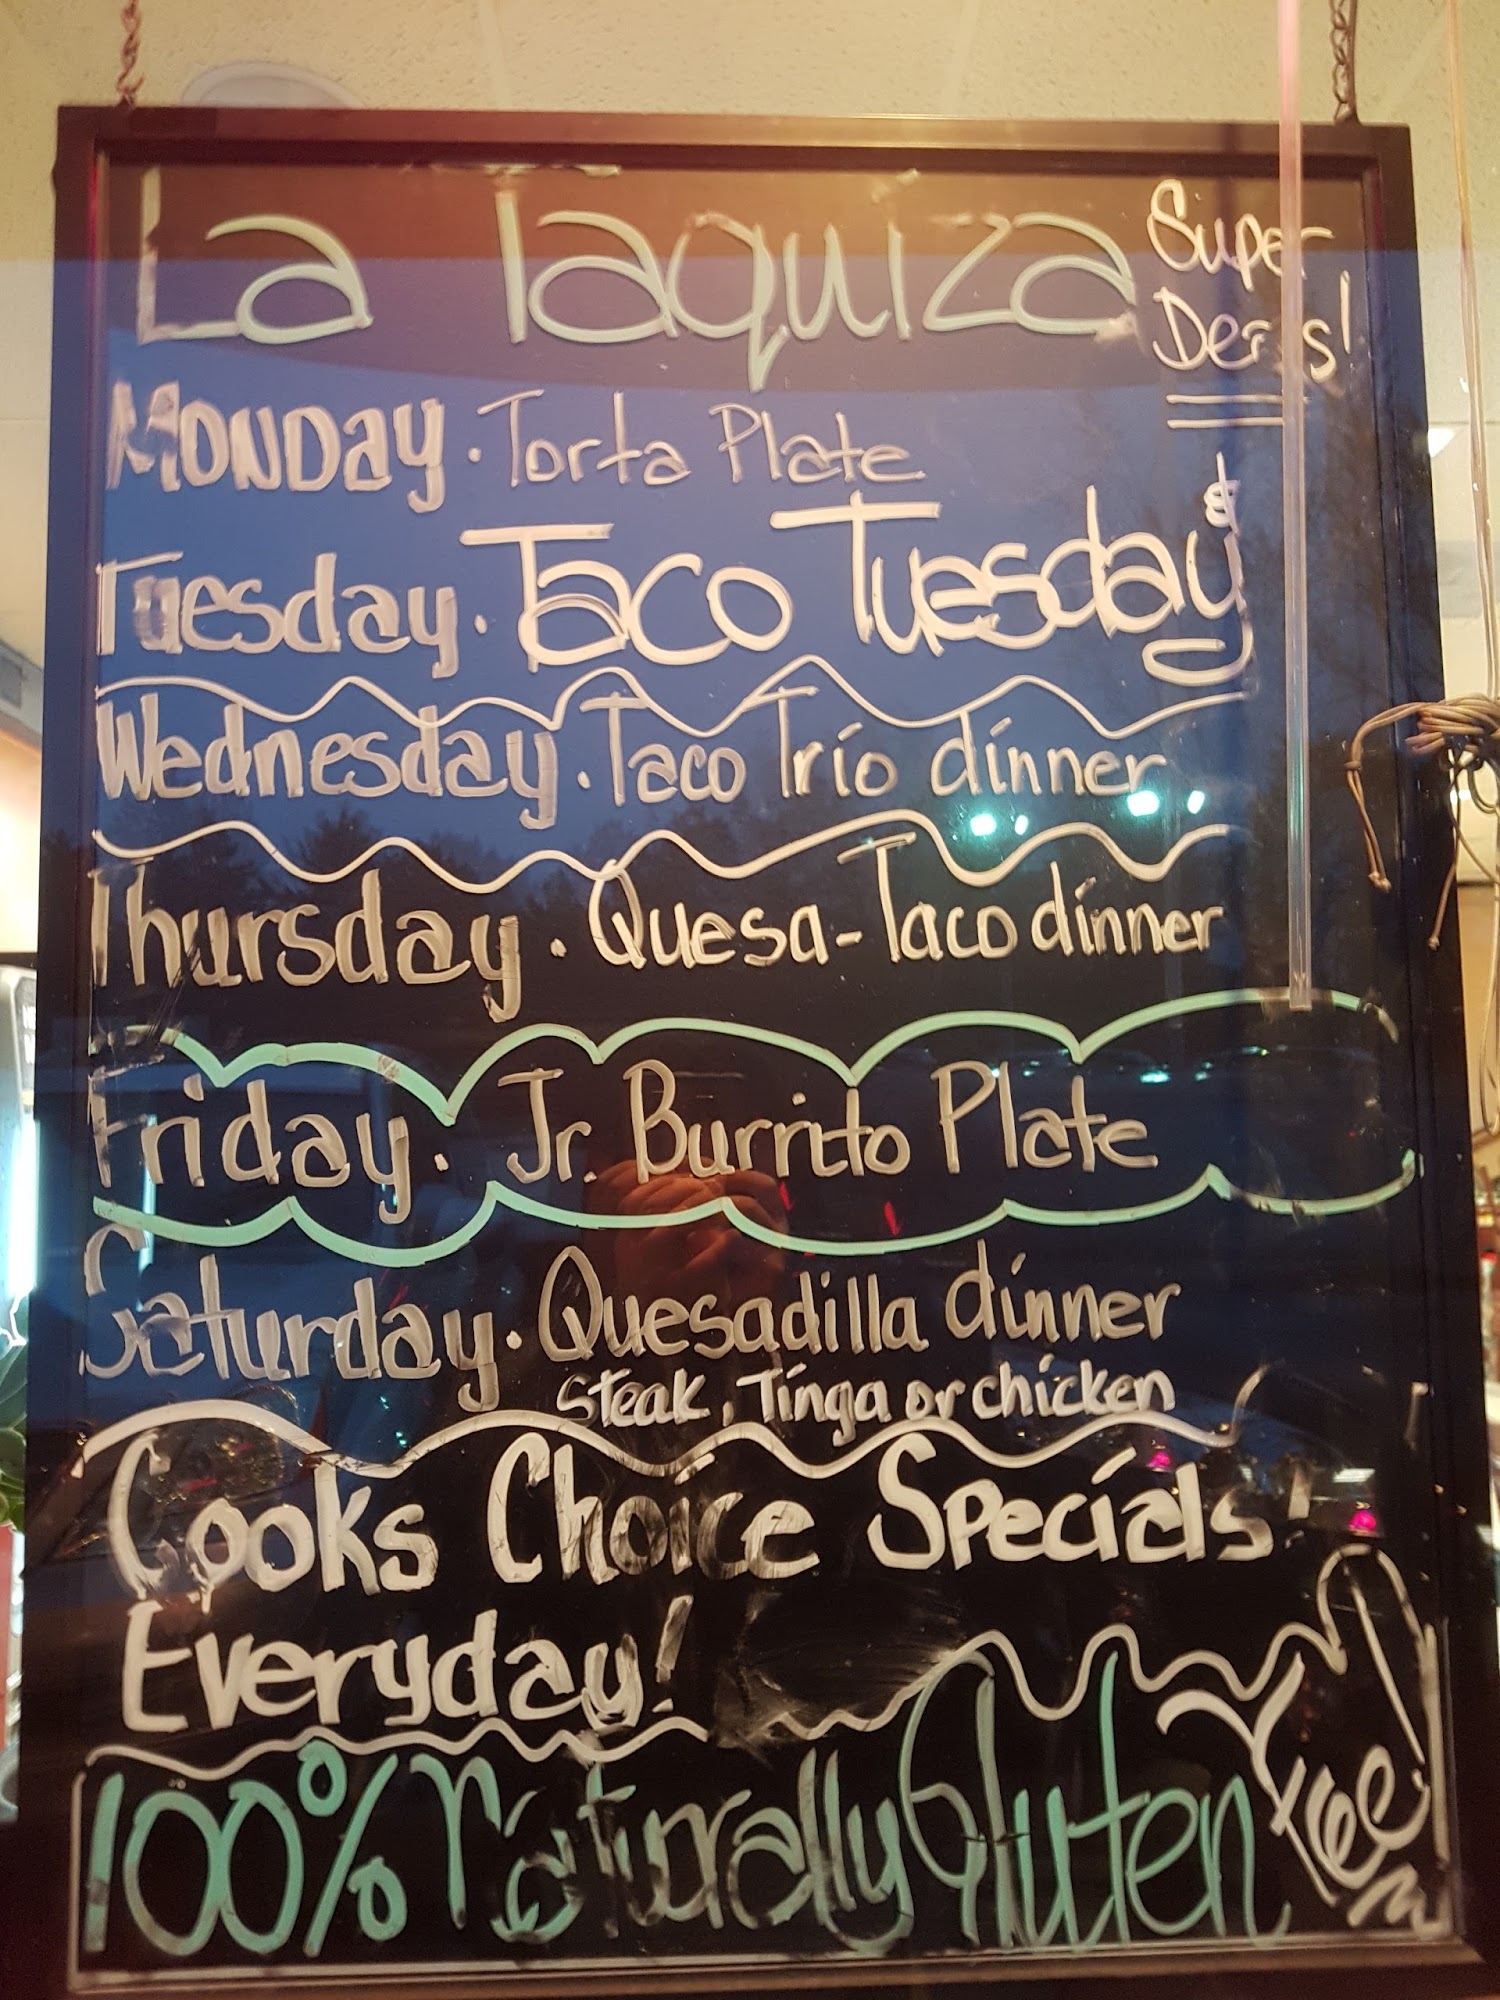 La Taquiza
Super
Der s!
Monday. Torta Plate
&
Tuesday. Taco Tuesday
Wednesday. Taco Trio dinner
Thursday. Quesa-Taco dinner
Friday. Jr. Burrito Plate
Saturday. Quesadilla dinner
Steak, Tinga or chicken
Cooks Choice Specials!
Everyday!
100% Naturally Gluten
Free!